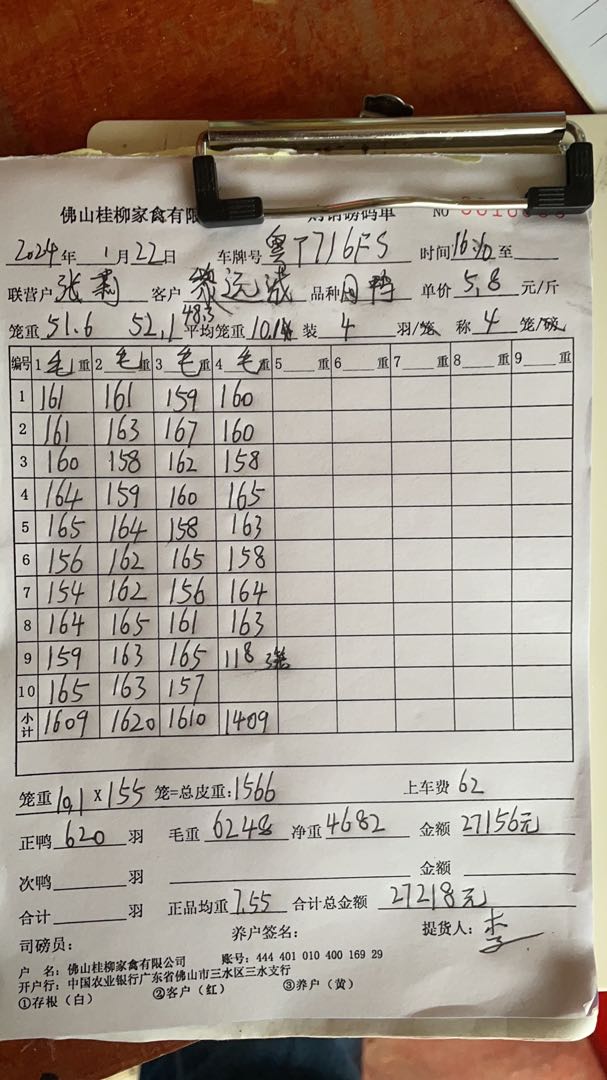 佛山桂柳家禽有限 购销磅码单 NO
2024年 1月22日 车牌号 粤T716FS 时间16 至
联营户 张莉 客户 黎远 品种 肉鸭 单价 5,8 元/斤
48.3
笼重 51.6 52,1 平均笼重 10.1 装 4 羽/笼 称 4 笼/磅
编号 1 毛 重 2 毛 重 3 毛 重 4 毛 重 5 重 6 重 7 重 8 重 9 重
1 161 161 159 160
2 161 163 167 160
3 160 158 162 158
4 164 159 160 165
5 165 164 158 163
6 156 162 165 158
7 154 162 156 164
8 164 165 161 163
9 159 163 165 118 3笼
10 165 163 157
小计 1609 1620 1610 1409
笼重 10,1 X 155 笼=总皮重:1566 上车费 62
正鸭 620 羽 毛重 6248 净重 4682 金额 27156元
次鸭 羽 金额
合计 羽 正品均重 7.55 合计总金额 27218元
司磅员: 养户签名: 提货人: 李
户 名: 佛山桂柳家禽有限公司 账号: 444 401 010 400 169 29
开户行: 中国农业银行广东省佛山市三水区三水支行
①存根(白) ②客户(红) ③养户(黄)